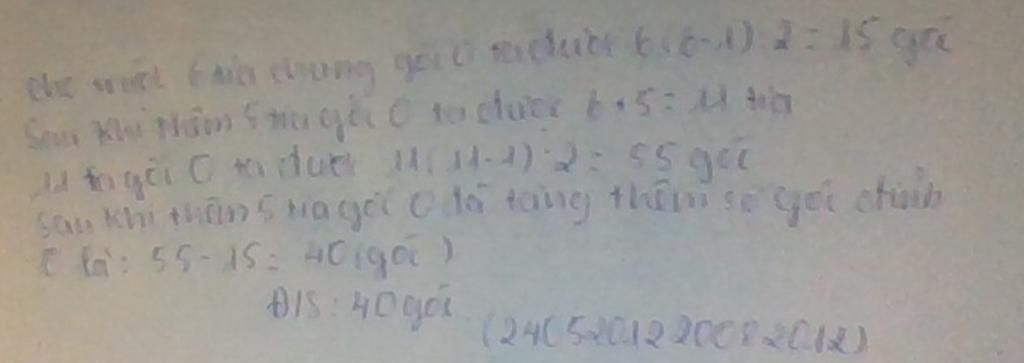 cho trước 6 tia chung gốc O ta được 6(6-1):2=15 góc
Sau khi thêm 5 tia gốc O ta được 6+5=11 tia
11 tia gốc O ta được 11(11-1):2=55 góc
Sau khi thêm 5 tia gốc O đã tăng thêm số góc đỉnh
O là: 55-15=40(góc)
Đ/S: 40góc
(2405201220082012)